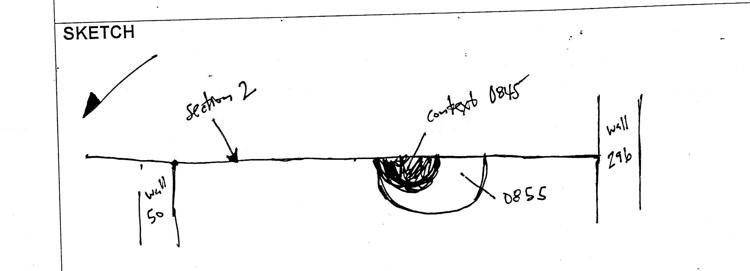 SKETCH
section 2
context 0845
wall
29b
wall
50
0855